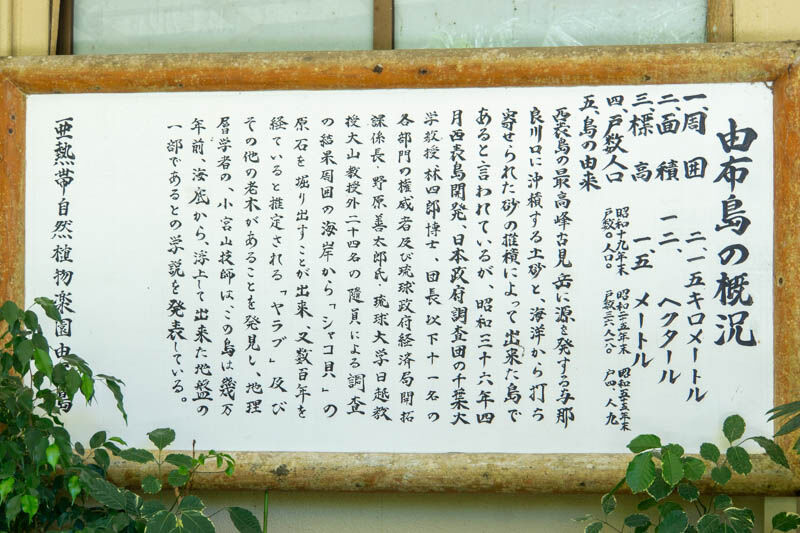 由布島の概況
一、周囲 二、一五キロメートル
二、面積 一二、ヘクタール
三、標高 一、五 メートル
四、戸数人口
昭和十九年末 戸数〇。人口〇
昭和二五年末
昭和五十五年末 戸四、人九
五、島の由来
西表島の最高峰古見岳に源を発する与那
良川口に沖積する土砂と、海洋から打ち
寄せられた砂の推積によって出来た島で
あると言われているが、昭和三十六年四
月西表島開発、日本政府調査団の千葉大
学教授林四郎博士、団長以下十一名の
各部門の権威者及び琉球政府経済局開拓
課係長、野原善太郎氏、琉球大学日越教
授大山教授外二十四名の随員による調査
の結果周囲の海岸から「シャコ貝」の
原石を堀り出すことが出来、又数百年を
経ていると推定される「ヤラブ」及び
その他の老木があることを発見し、地理
層学者の、小宮山技師は、この島は幾万
年前、海底から、浮上して出来た地盤の
一部であるとの学説を発表している。
亜熱帯自然植物楽園由布島